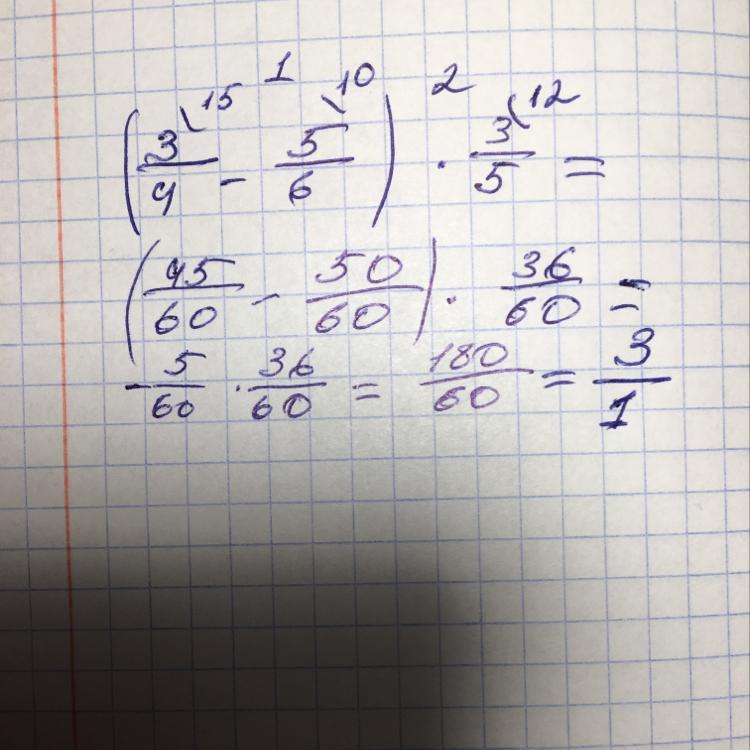 (3/4\15 - 5/6\10) · 3/5\12 =
1 2
(45/60 - 50/60) · 36/60 =
-5/60 · 36/60 = 180/60 = 3/1